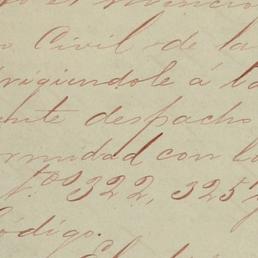 o Civil de la
irigiendole á la
ente despacho
ormidad con lo
tos 322, 325 y
ódigo.